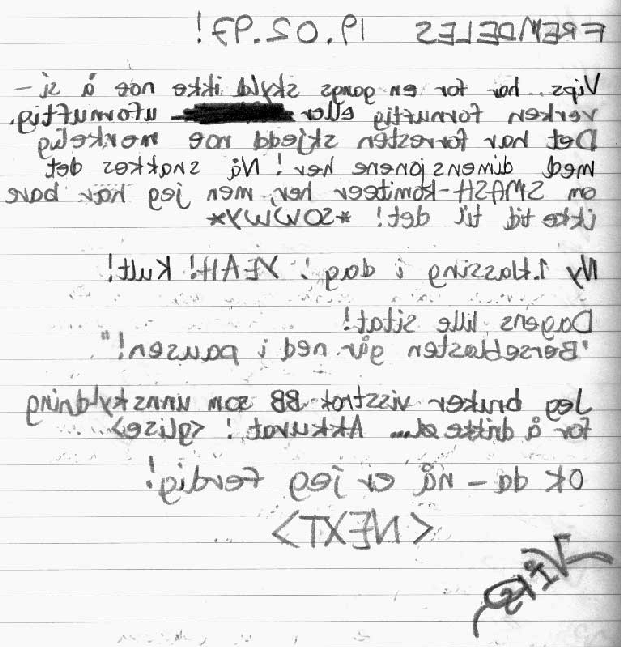 FREMDELES 19.02.97!
Vips har for en gangs skyld ikke noe å si –
verken fornuftig eller ufornuftig.
Det har forresten skjedd noe merkelig
med dimensjonene her! Nå snakkes det
om SMASH-komiteer her, men jeg har bare
ikke tid til det! *SOWWY*
Ny 1.klassing i dag! YEAH! Kult!
Dagens lille sitat!
"Børseblosten går ned i pausen!"
Jeg bruker visstnok BB som unnskyldning
for å dritte Akkurat! <glise>
OK da – nå er jeg ferdig!
<NEXT>